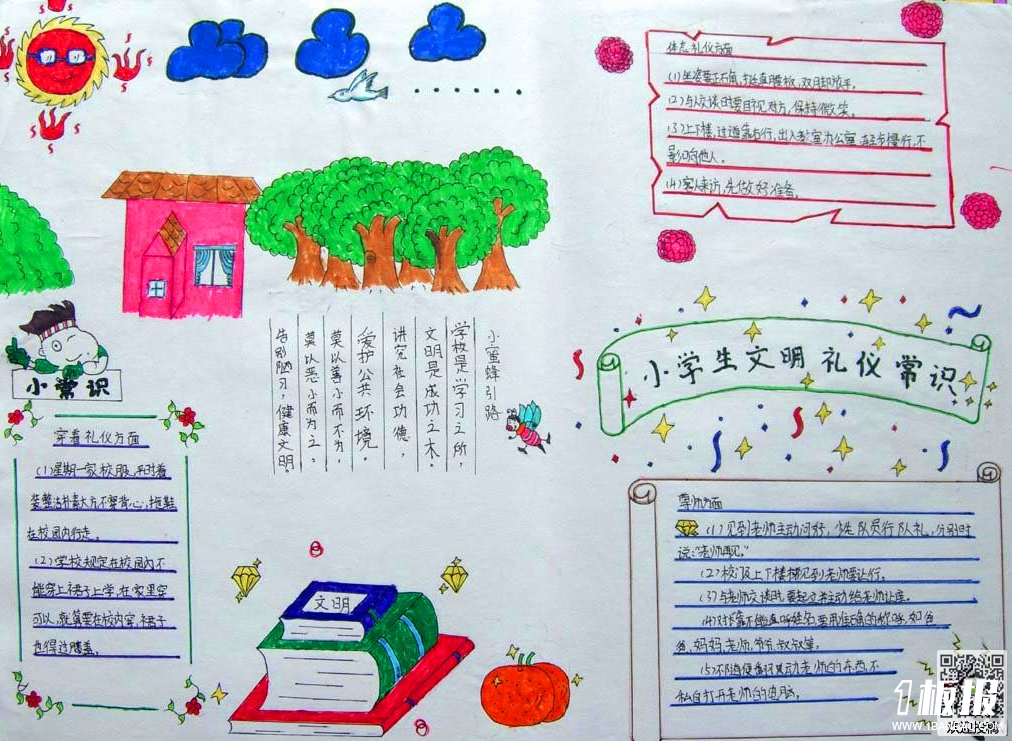 体态礼仪方面
(1)坐姿要正不角,挺直腰板,双脚放平。
(2)与人交谈时要目视对方,保持微笑。
(3)上下楼,过道靠右行,出入教室办公室轻步慢行,不
影响他人。
(4)客人来访,先做好准备。
小学生文明礼仪常识
小蜜蜂引路
学校是学习之所,
文明是成功之本。
讲究社会功德,
爱护公共环境。
莫以善小而不为,
莫以恶小而为之,
告别陋习,健康文明。
小常识
穿着礼仪方面
(1)星期一家校服,平时着
装整洁朴素大方不穿背心,拖鞋
在校园内行走。
(2)学校规定在校园内不
能穿上裙子上学,在家里穿
可以,就算要在校内穿,裙子
也得过膝盖。
文明
尊师方面
(1)见到老师主动问好,少先队员行队礼,分别时
说:“老师再见。”
(2)校门及上下楼梯见到老师要让行。
(3)与老师交谈时,要起立并主动给老师让座。
(4)对长辈不能直呼姓名,要用准确的称呼,如爸
爸,妈妈,老师,爷爷,叔叔等。
(5)不随便翻动老师的东西,不
私自打开老师的电脑。
1板报
WWW.1BANBAO.COM
欢迎投稿